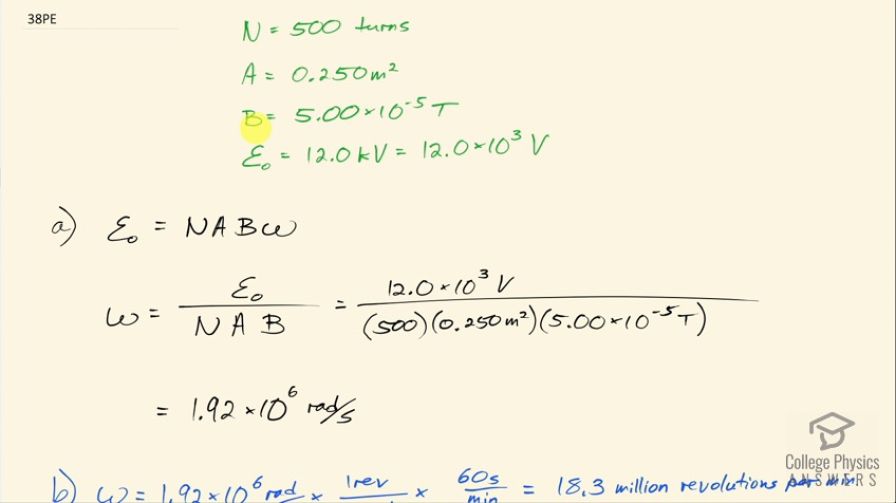 38PE
N = 500 turns
A = 0.250 m²
B = 5.00 × 10⁻⁵ T
ℰ₀ = 12.0 kV = 12.0 × 10³ V
a) ℰ₀ = NABω
ω = ℰ₀ / NAB = 12.0 × 10³ V / (500)(0.250 m²)(5.00 × 10⁻⁵ T)
= 1.92 × 10⁶ rad/s
b) ω = 1.92 × 10⁶ rad × 1 rev × 60 s / min = 18.3 million revolutions per min
College Physics
ANSWERS